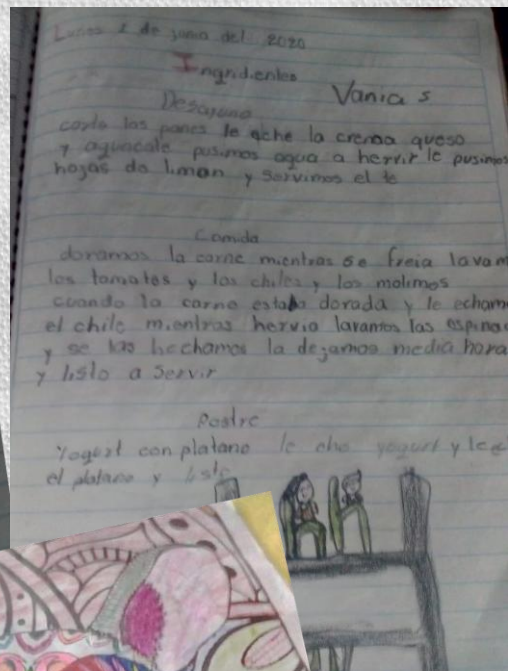 Lunes 1 de junio del 2020
Ingridientes
Vania S
Desayuno
corte los panes le eche la crema queso
y aguacate pusimos agua a hervir le pusimos
hojas de limon y servimos el te
Comida
doramos la carne mientras se freia lavam
los tomates y los chiles y los molimos
cuando la carne estaba dorada y le echam
el chile mientras hervia lavamos las espinac
y se las hechamos la dejamos media hora
y listo a servir
Postre
Yogurt con platano le che yogurt y le e
el platano y listo